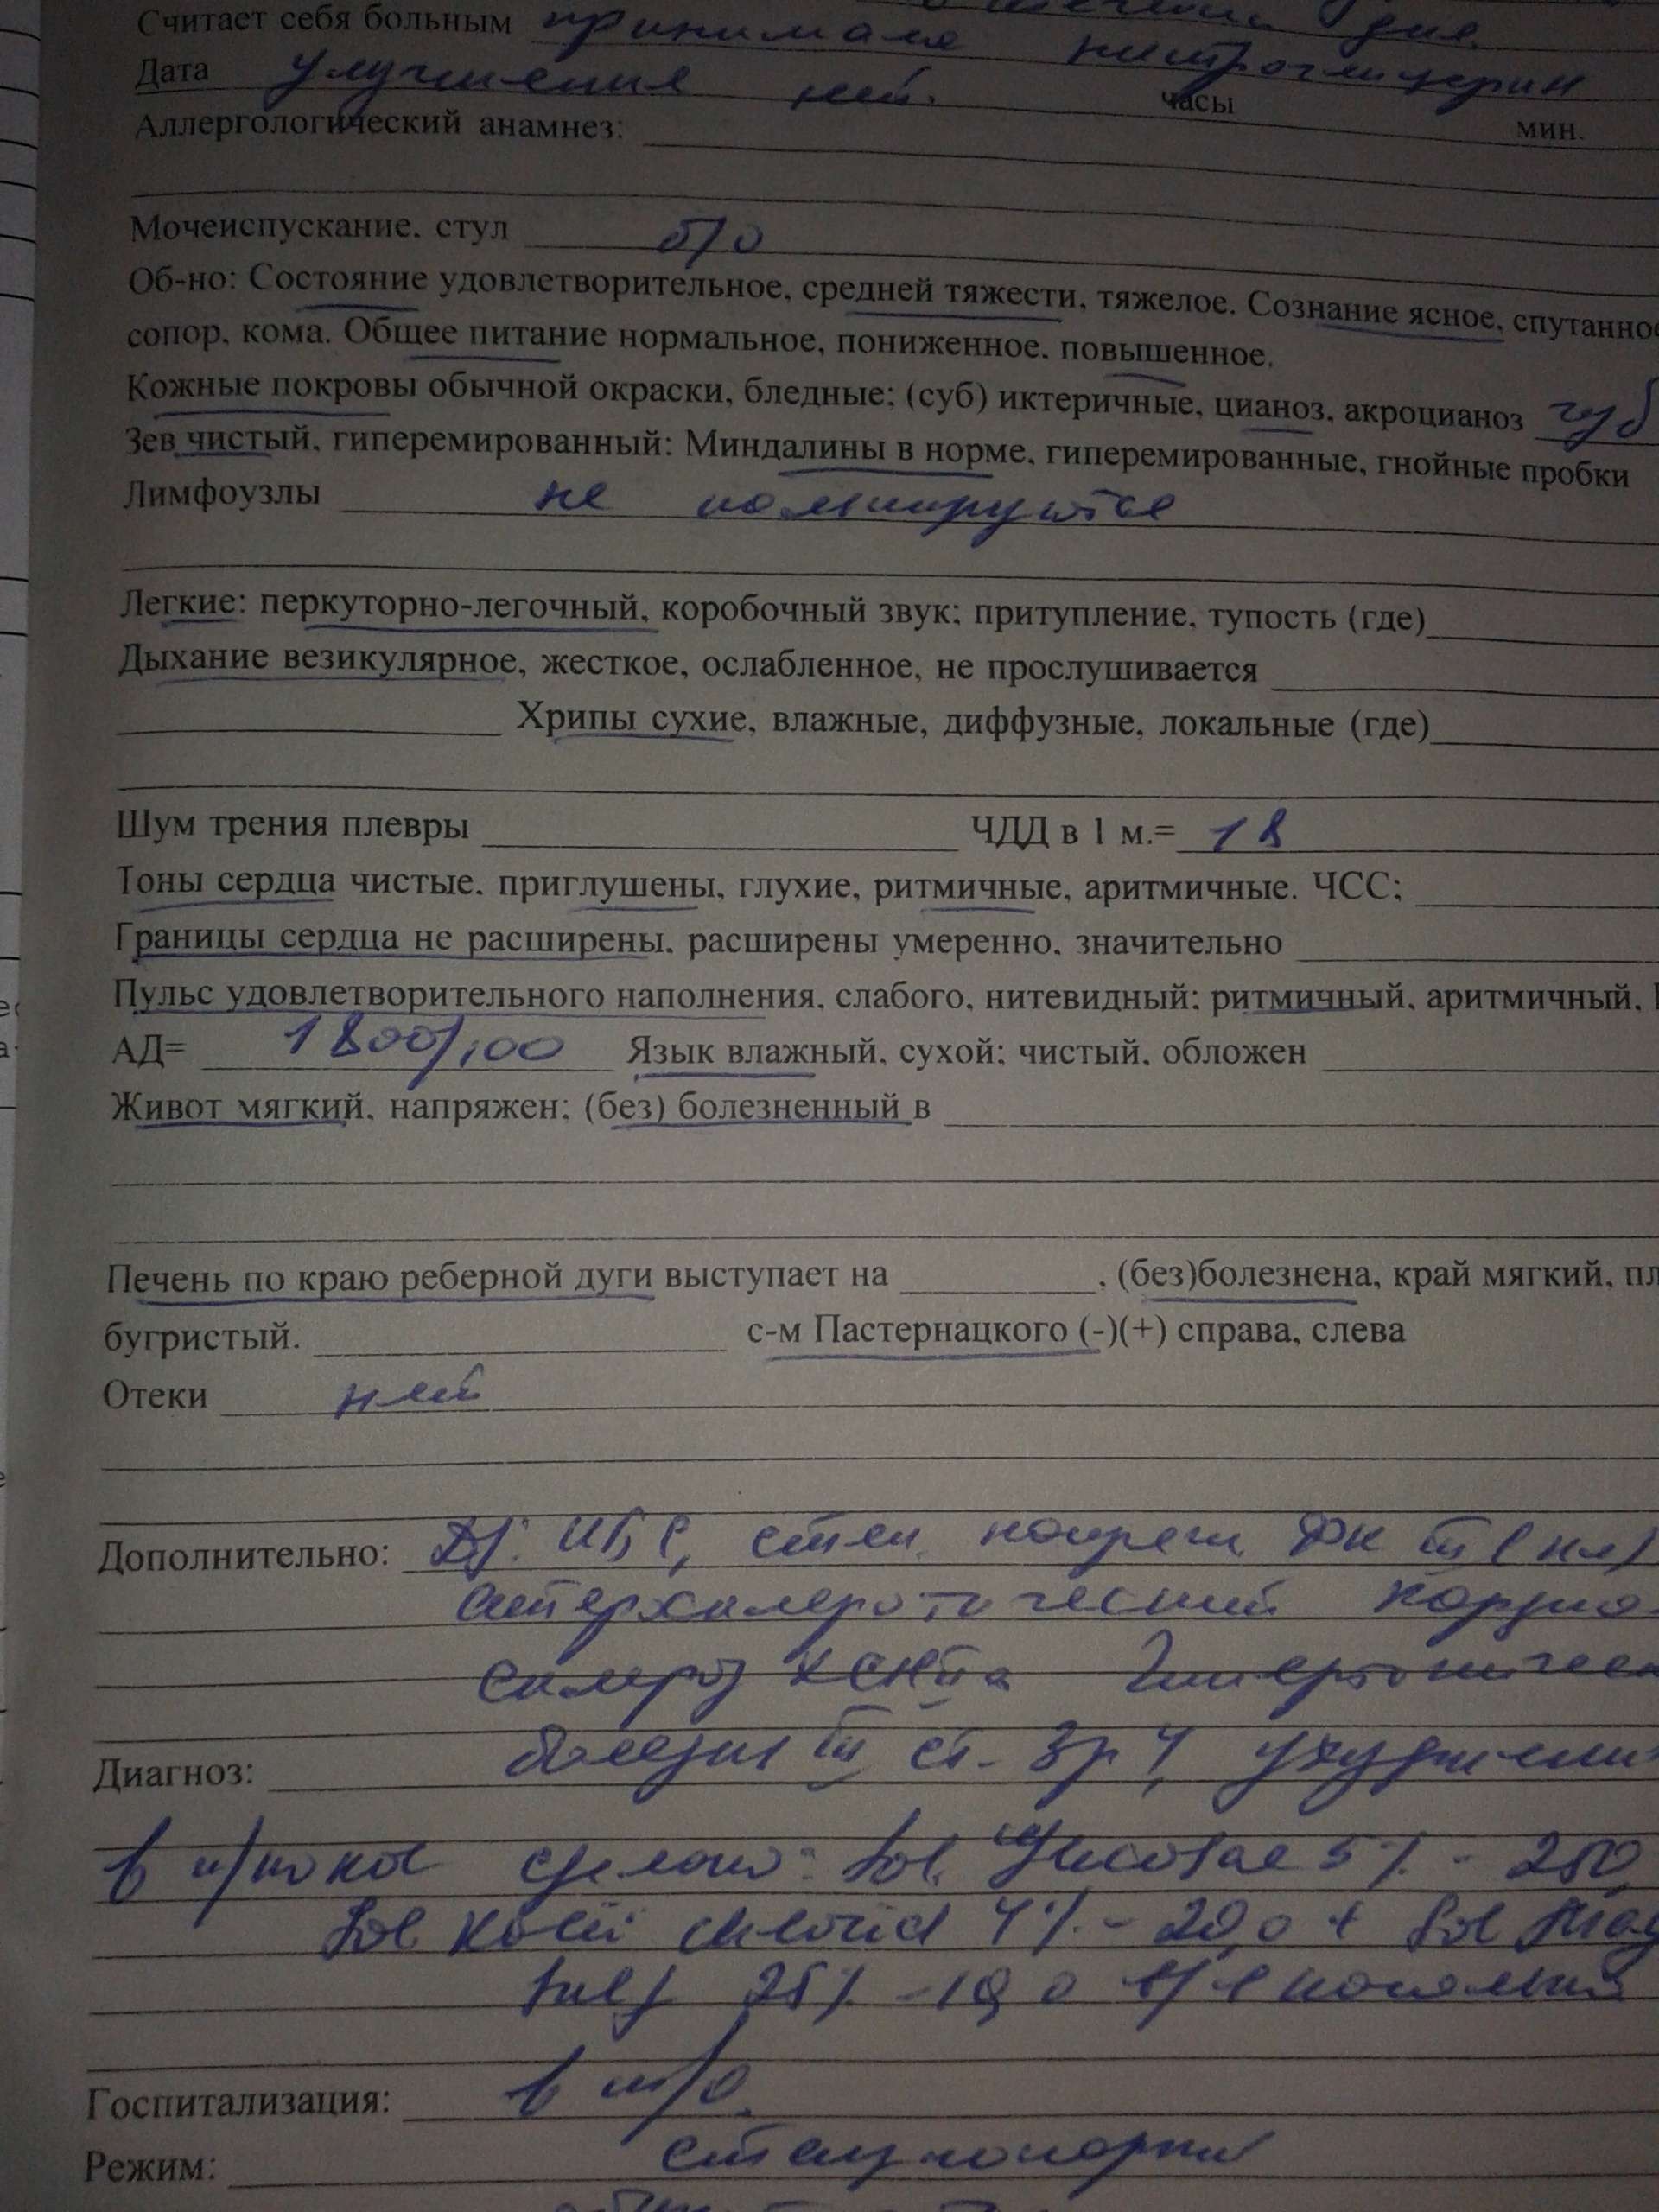 Считает себя больным принимала дня
Дата улучшения нет. нитроглицерин часы мин.
Аллергологический анамнез:
Мочеиспускание. стул б/о
Об-но: Состояние удовлетворительное, средней тяжести, тяжелое. Сознание ясное, спутанное
сопор, кома. Общее питание нормальное, пониженное, повышенное.
Кожные покровы обычной окраски, бледные; (суб) иктеричные, цианоз, акроцианоз губ
Зев чистый, гиперемированный: Миндалины в норме, гиперемированные, гнойные пробки
Лимфоузлы не пальпируются
Легкие: перкуторно-легочный, коробочный звук; притупление, тупость (где)
Дыхание везикулярное, жесткое, ослабленное, не прослушивается
Хрипы сухие, влажные, диффузные, локальные (где)
Шум трения плевры ЧДД в 1 м.= 18
Тоны сердца чистые. приглушены, глухие, ритмичные, аритмичные. ЧСС;
Границы сердца не расширены, расширены умеренно, значительно
Пульс удовлетворительного наполнения, слабого, нитевидный; ритмичный, аритмичный,
АД= 1800/100 Язык влажный, сухой; чистый, обложен
Живот мягкий, напряжен; (без) болезненный в
Печень по краю реберной дуги выступает на , (без)болезнена, край мягкий, пл
бугристый. с-м Пастернацкого (-)(+) справа, слева
Отеки нет
Дополнительно: Ds: ИБС, стен. напряж ФК III
атеросклеротический кардио-
склероз ХСН IIа Гипертоническ
Диагноз: болезнь III ст. 3 р 4, ухудшение
сделано: Sol. Glucosae 5% - 250,
Sol Kalii chlorid 4% - 20,0 + Sol Mag
Sulf 25% - 10,0 в/в капельно
Госпитализация: в т/о
Режим: стационарный